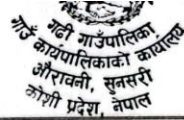 गढी गाउँपालिका
गाउँ कार्यपालिकाको कार्यालय
औरावनी, सुनसरी
कोशी प्रदेश, नेपाल